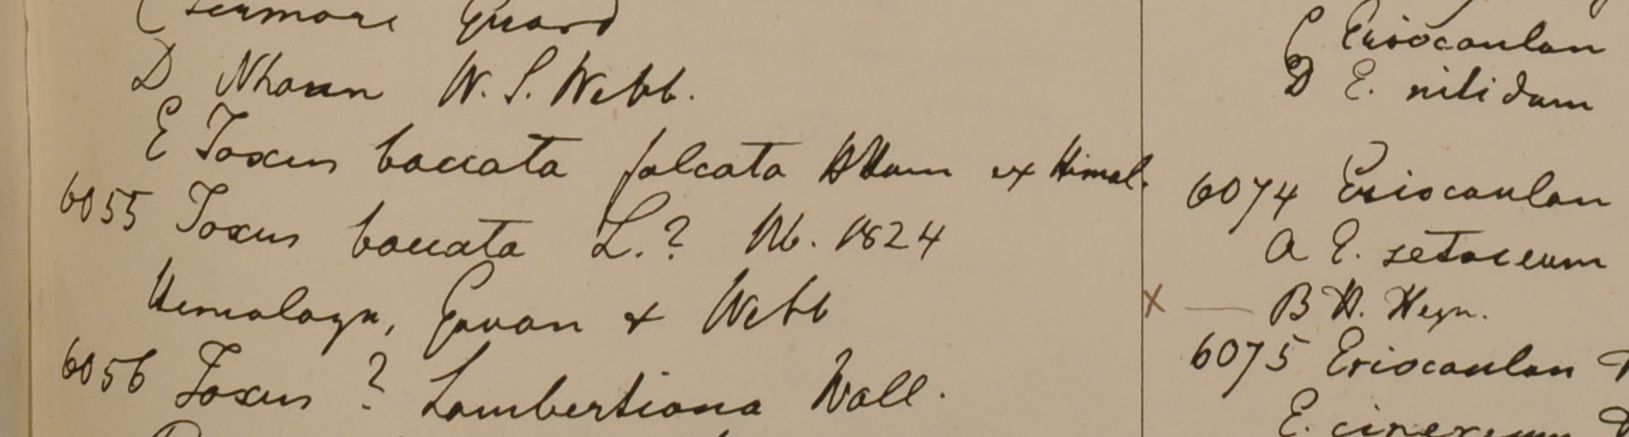 D Nhaun W. S. Webb.
E Taxus baccata falcata HHam ex Himal.
6055 Taxus baccata L.? Nb. 1824
Himalaya, Govan & Webb
6056 Taxus ? Lambertiana Wall.
C Eriocaulon
D E. nitidum
6074 Eriocaulon
A E. setaceum
X — B H. Heyn.
6075 Eriocaulon
E. cinereum